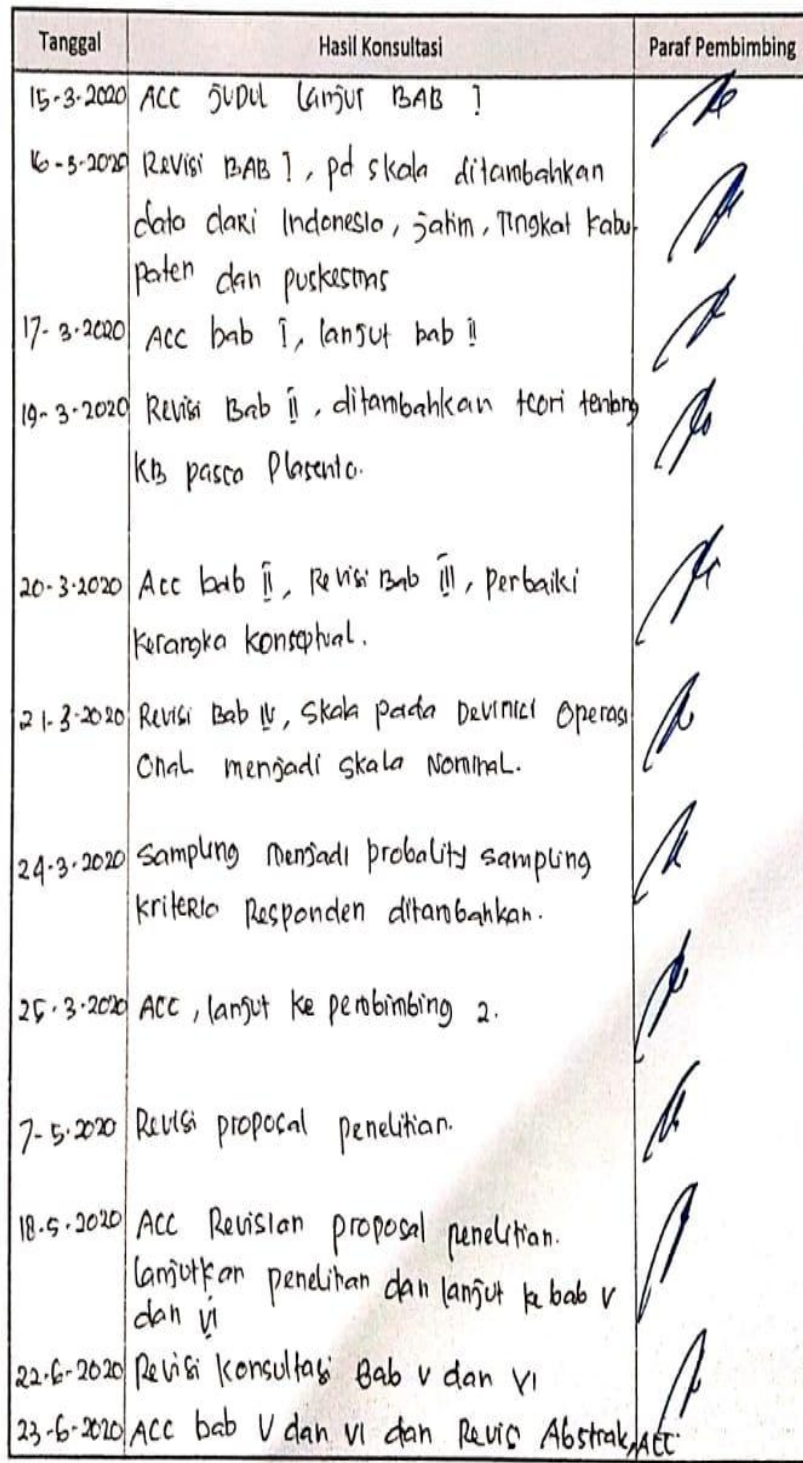 Tanggal Hasil Konsultasi Paraf Pembimbing
15-3-2020 ACC JUDUL lanjut BAB I
16-3-2020 Revisi BAB I, pd skala ditambahkan
data dari Indonesia, jatim, Tingkat kabu-
paten dan puskesmas
17-3-2020 ACC bab I, lanjut bab II
19-3-2020 Revisi Bab II, ditambahkan teori tentang
KB pasca Plasenta.
20-3-2020 Acc bab II, Revisi Bab III, perbaiki
kerangka konseptual.
21-3-2020 Revisi Bab IV, Skala pada Devinici Operasi
onal menjadi skala Nominal.
24-3-2020 Sampling menjadi probality sampling
kriteria Responden ditambahkan.
25-3-2020 ACC, lanjut ke pembimbing 2.
7-5-2020 Revisi proposal penelitian.
18-5-2020 ACC Revisian proposal penelitian.
lanjutkan penelitian dan lanjut ke bab V
dan VI
22-6-2020 Revisi konsultasi Bab V dan VI
23-6-2020 ACC bab V dan VI dan Revisi Abstrak, ACC